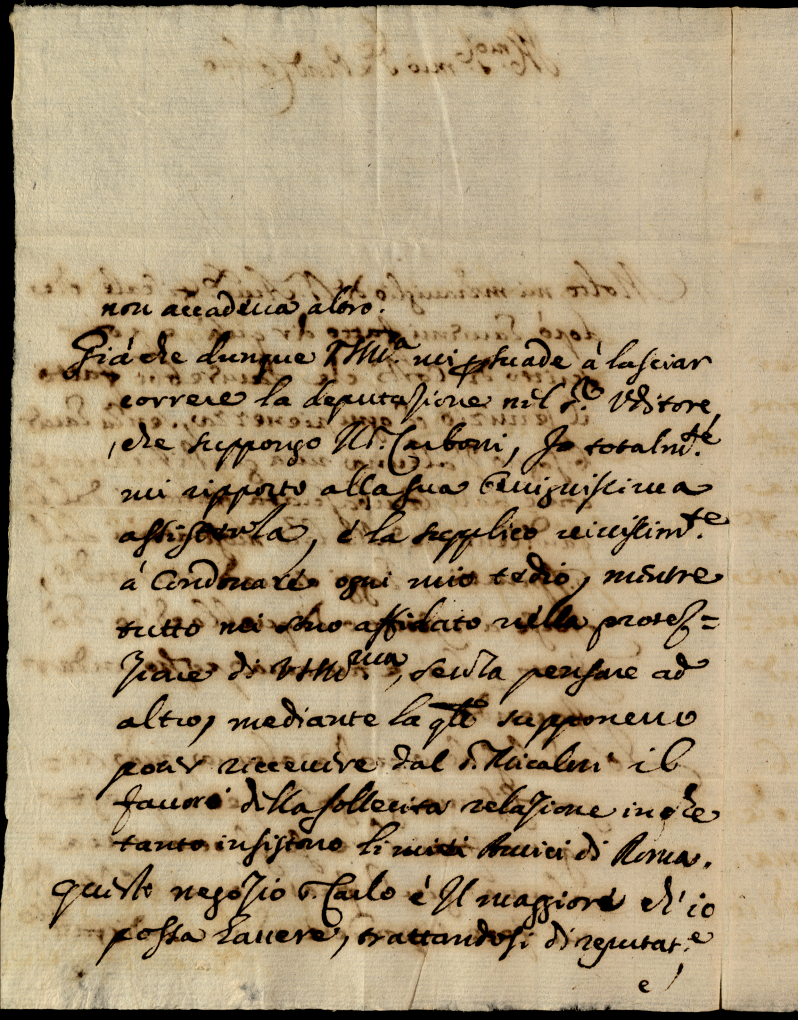 non accadeua altro.
Già che dunque V.S.Ill.ma mi psuade à lasciar
correre la deputazione nel S.r Vditore,
che suppongo Carboni, Io totalm.te
mi rapporto alla sua benignissima
, é la supplico viuissim.te
à Condonare ogni mio tedio, mentre
tutto mi affidato nella protez=
zione di V.S.Ill.ma, senza pensare ad
altro, mediante la qle supponeuo
poter riceuere dal S. Micalori il
fauore della sollecita relazione in che
tanto insistono li miei Amici di Roma.
questo negozio S. Carlo é Il maggiore ch' io
possa hauere, trattandosi di reputat.e
e